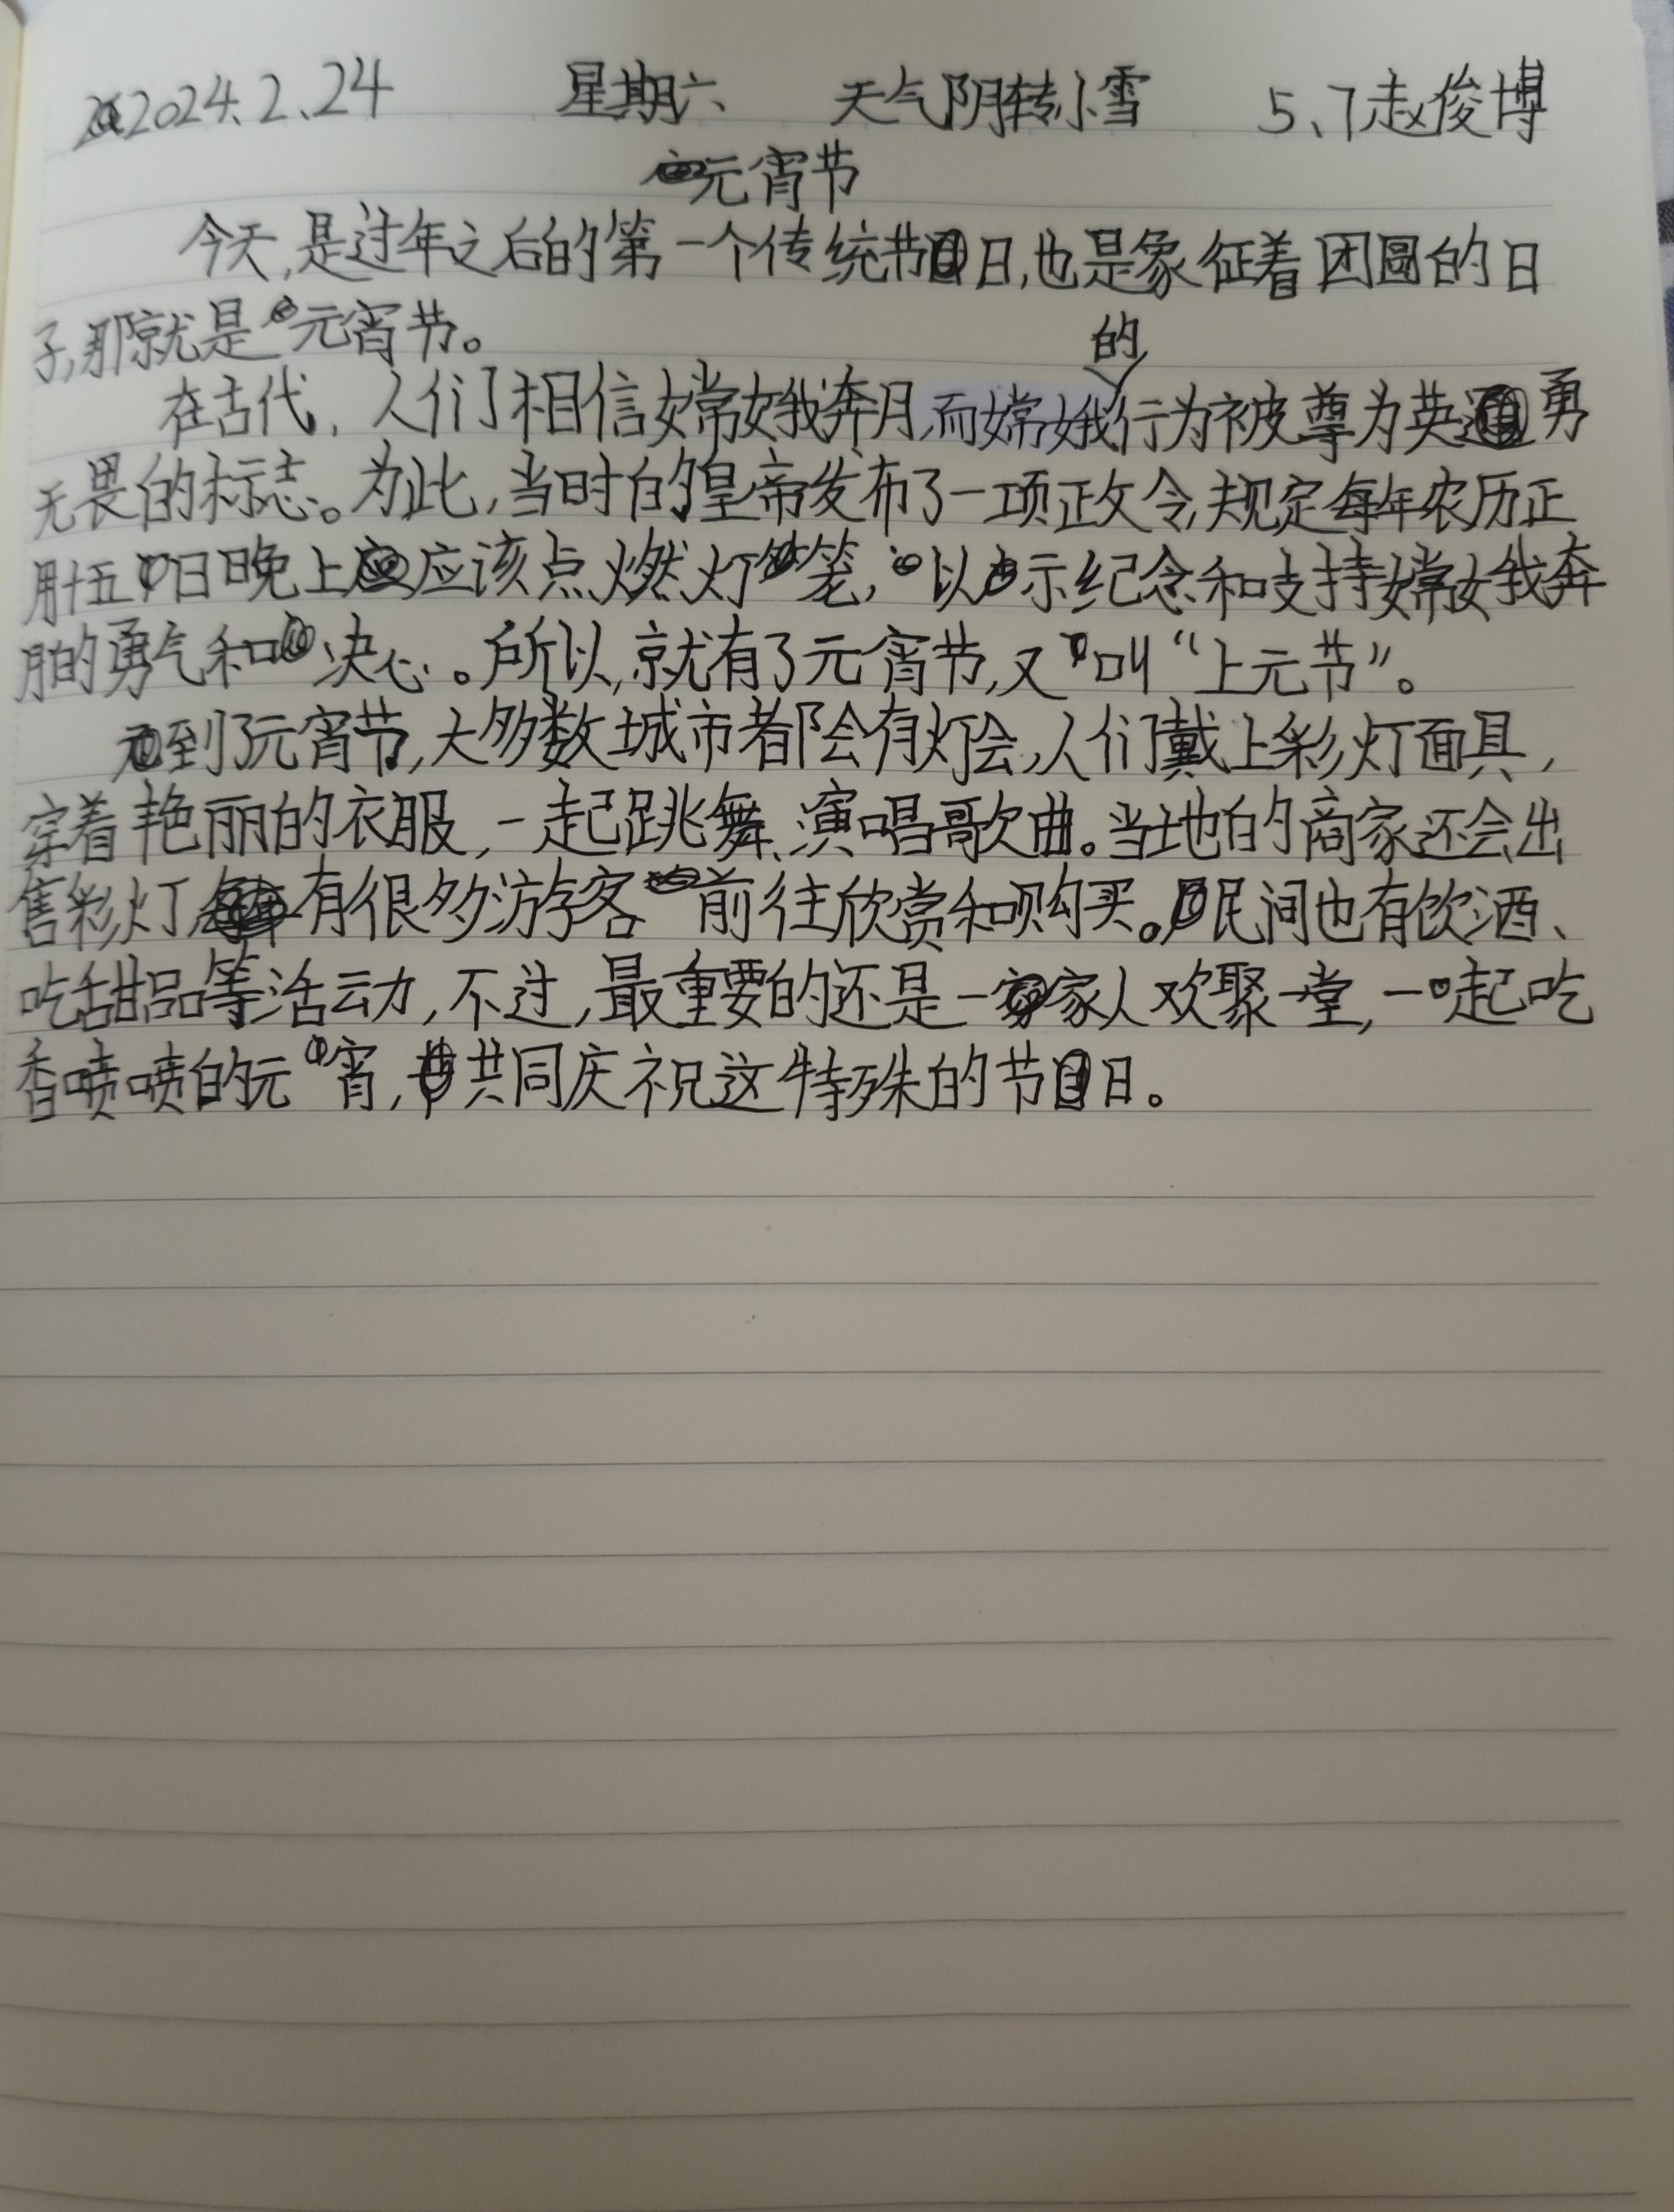 2024.2.24 星期六 天气阴转小雪 5、7赵俊博
元宵节
今天,是过年之后的第一个传统节日,也是象征着团圆的日
子,那就是元宵节。
在古代,人们相信嫦娥奔月,而嫦娥的行为被尊为英勇
无畏的标志。为此,当时的皇帝发布了一项正文令,规定每年农历正
月十五日晚上应该点燃灯笼,以示纪念和支持嫦娥奔
月的勇气和决心。所以,就有了元宵节,又叫“上元节”。
到了元宵节,大多数城市都会有灯会,人们戴上彩灯面具,
穿着艳丽的衣服,一起跳舞、演唱歌曲。当地的商家还会出
售彩灯,有很多游客前往欣赏和购买。民间也有饮酒、
吃甜品等活动,不过,最重要的还是一家人欢聚一堂,一起吃
香喷喷的元宵,共同庆祝这特殊的节日。